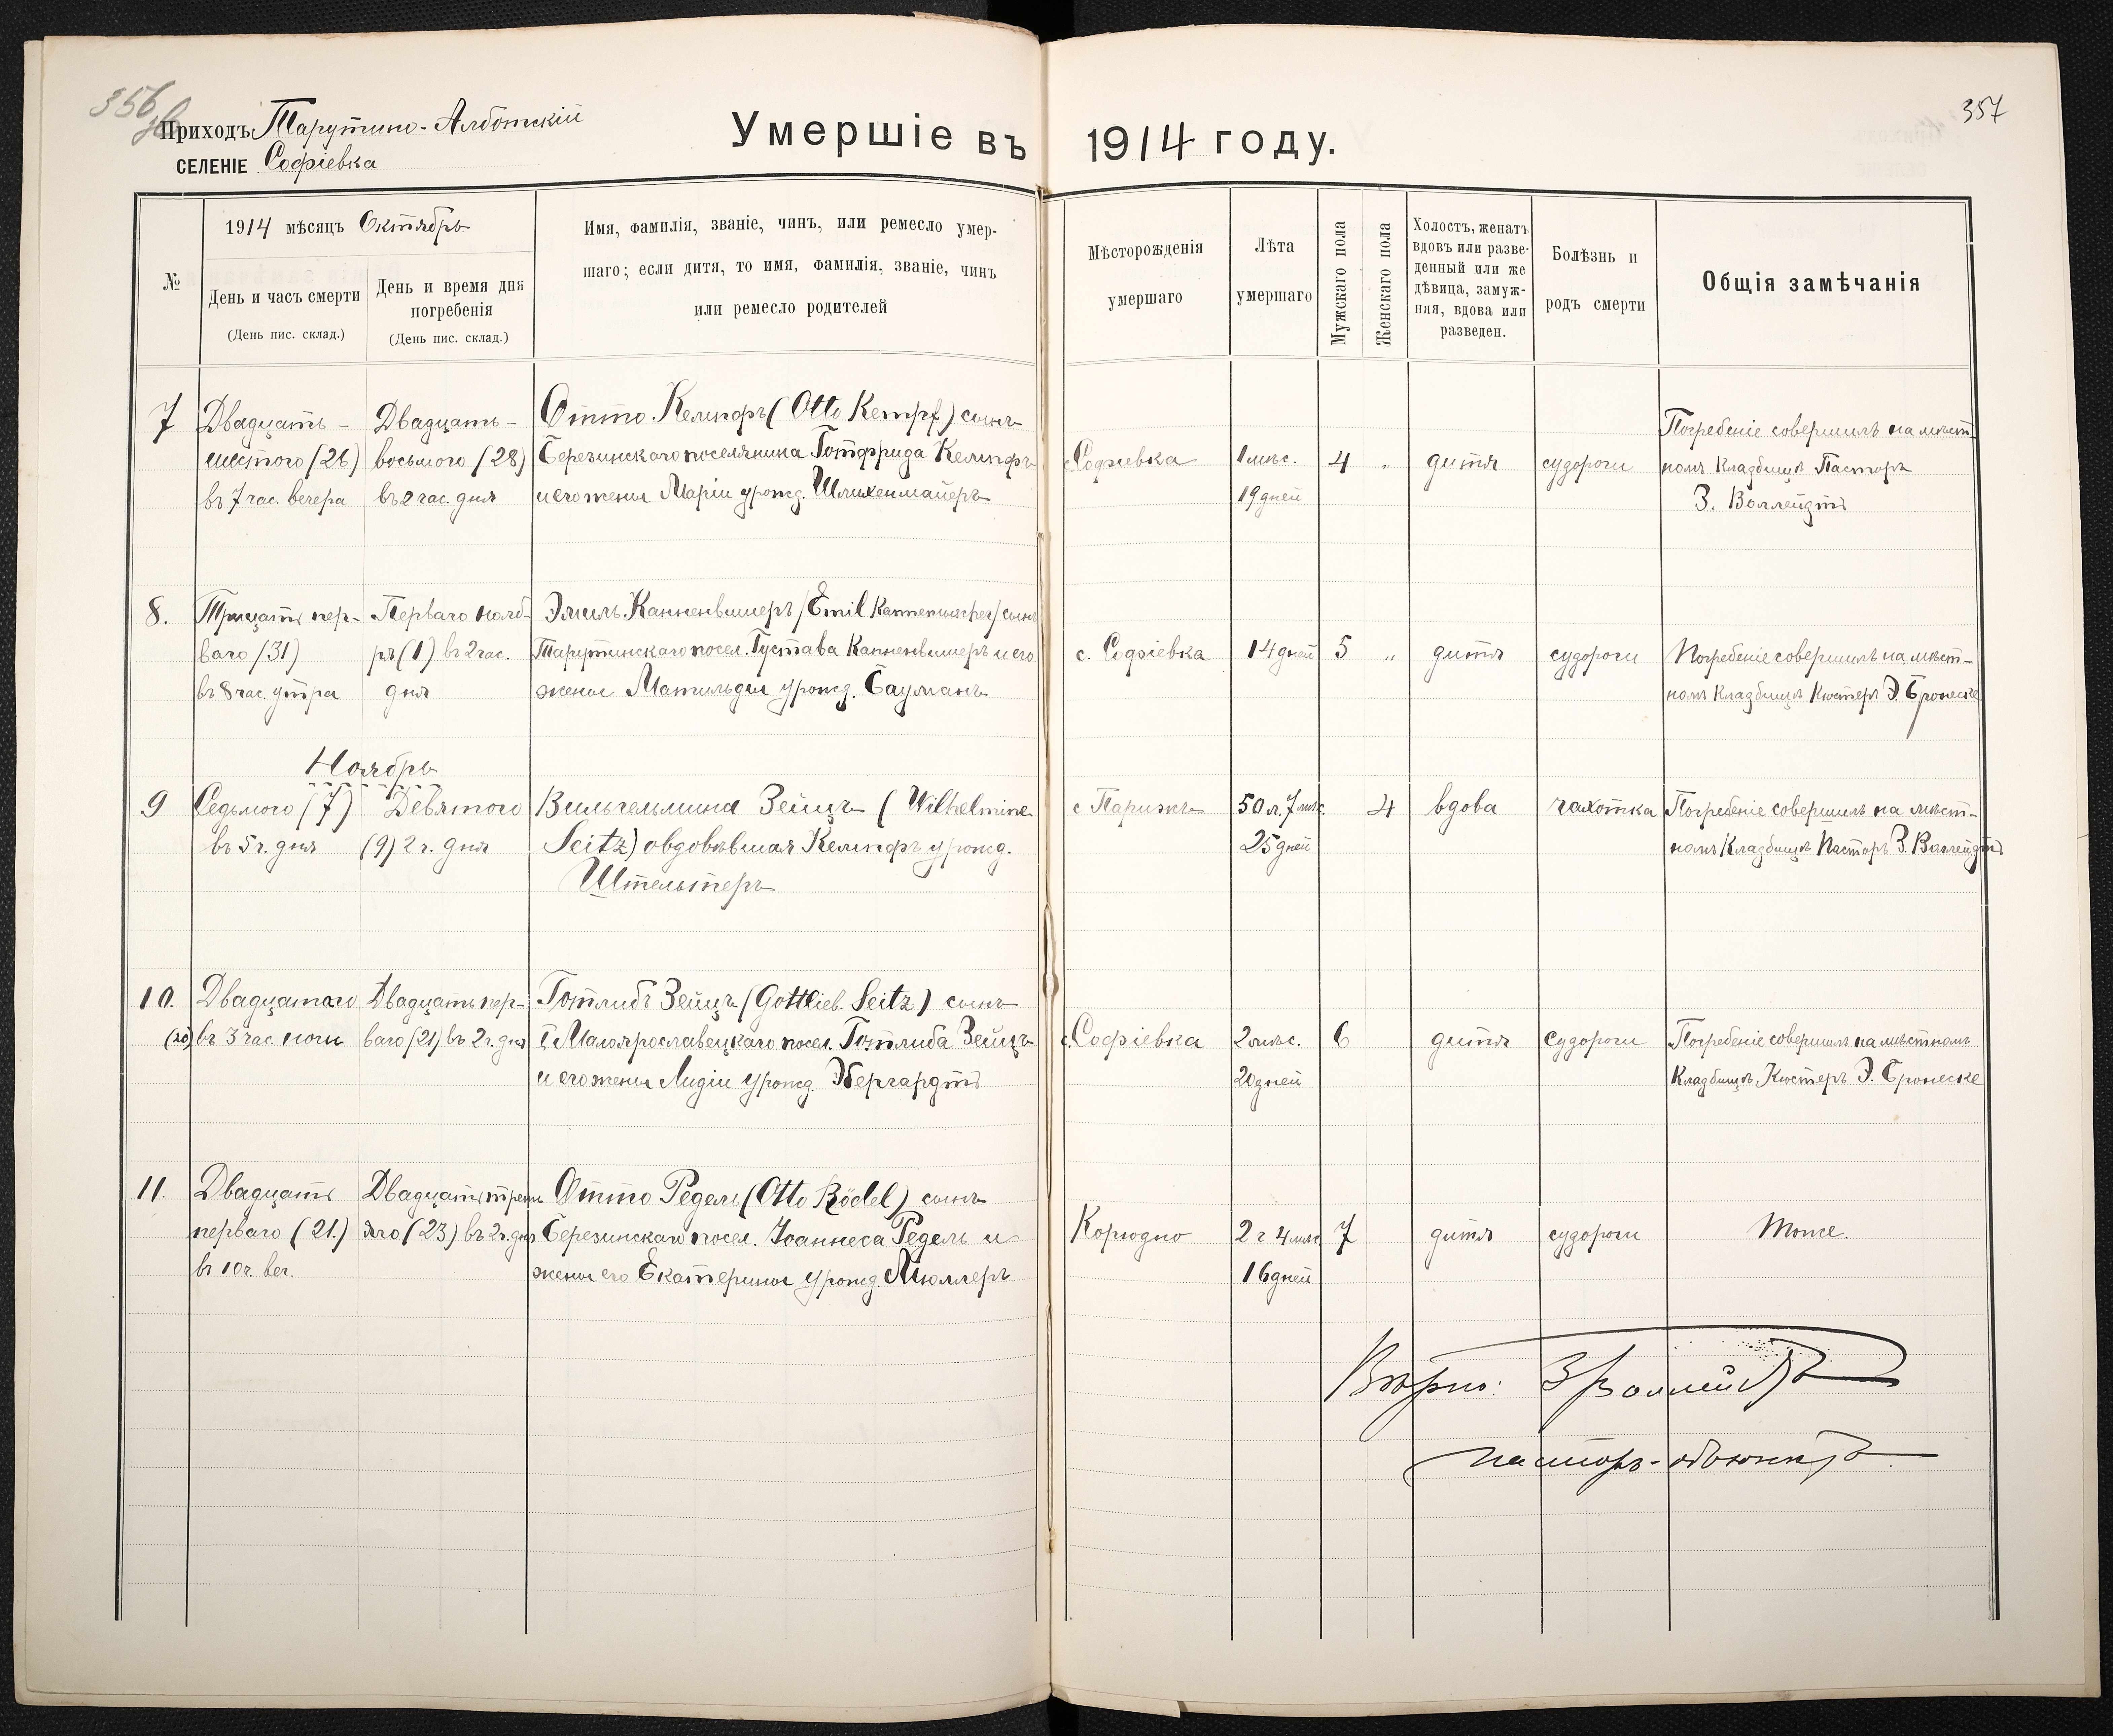 356
Приходъ Тарутино-Алботскій
СЕЛЕНІЕ Софіевка
Умершіе въ 1914 году.
357
№
1914 мѣсяцъ Октябрь
День и часъ смерти
(День пис. склад.)
День и время дня
погребенія
(День пис. склад.)
Имя, фамилія, званіе, чинъ, или ремесло умер-
шаго; если дитя, то имя, фамилія, званіе, чинъ
или ремесло родителей
Мѣсторожденія
умершаго
Лѣта
умершаго
Мужскаго пола
Женскаго пола
Холостъ, женатъ
вдовъ или разве-
денный или же
дѣвица, замуж-
няя, вдова или
разведен.
Болѣзнь и
родъ смерти
Общія замѣчанія
7
Двадцать-
шестого (26)
въ 7 час. вечера
Двадцать-
восьмого (28)
въ 2 час. дня
Отто Кемпфъ (Otto Kempf) сынъ
Березинскаго поселянина Готфрида Кемпфъ
и его жены Маріи урожд. Шлихенмайеръ
с. Софіевка
1 мѣс.
19 дней
4
„
дитя
судороги
Погребеніе совершилъ на мѣст-
номъ Кладбищѣ Пасторъ
З. Воллейдтъ
8.
Тридцать пер-
ваго (31)
въ 8 час. утра
Перваго нояб-
ря (1) въ 2 час.
дня
Эмиль Канненвишеръ (Emil Kannenwischer) сынъ
Тарутинскаго посел. Густава Канненвишеръ и его
жены Матильды урожд. Бауманъ
с. Софіевка
14 дней
5
„
дитя
судороги
Погребеніе совершилъ на мѣст-
номъ Кладбищѣ Кюстеръ Э. Бронеске
Ноябрь
9
Седьмого (7)
въ 5 ч. дня
Девятого
(9) 2 ч. дня
Вильгельмина Зейцъ (Wilhelmine
Seitz) овдовѣвшая Кемпфъ урожд.
Штельтеръ
с Парижъ
50 л. 7 мѣс.
25 дней
4
вдова
чахотка
Погребеніе совершилъ на мѣст-
номъ Кладбищѣ Пасторъ З. Воллейдтъ
10.
Двадцатаго
(20) въ 3 час. ночи
Двадцать пер-
ваго (21) въ 2 ч. дня
Готлибъ Зейцъ (Gottlieb Seitz) сынъ
I Малоярославецкаго посел. Готлиба Зейцъ
и его жены Лидіи урожд. Эбергардтъ
с. Софіевка
2 мѣс.
20 дней
6
дитя
судороги
Погребеніе совершилъ на мѣстномъ
Кладбищѣ Кюстеръ Э. Бронеске
11.
Двадцать
перваго (21.)
въ 10 ч. веч.
Двадцать треть
яго (23) въ 2 ч. дня
Отто Редель (Otto Rödel) сынъ
Березинскаго посел. Іоаннеса Редель и
жены его Екатерины урожд. Мюллеръ
Корюдно
2 г 4 мѣс
16 дней
7
дитя
судороги
Тоже.
Вѣрно: З Воллейдтъ
пасторъ-адъюнктъ